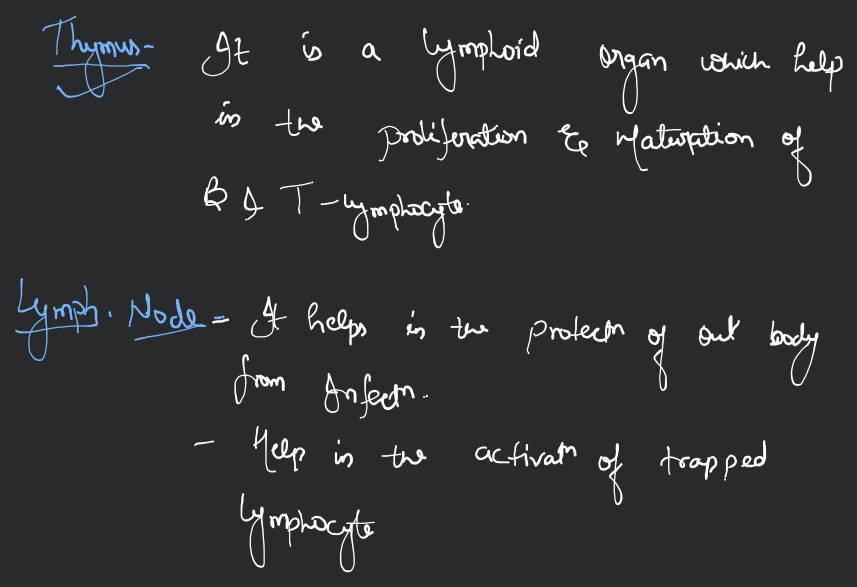 Thymus- It is a lymphoid organ which help
in the proliferation & Maturation of
B & T-lymphocyte.
Lymph. Node = It helps in the protectn of out body
from Infectn.
- Help in the activatn of trapped
lymphocyte